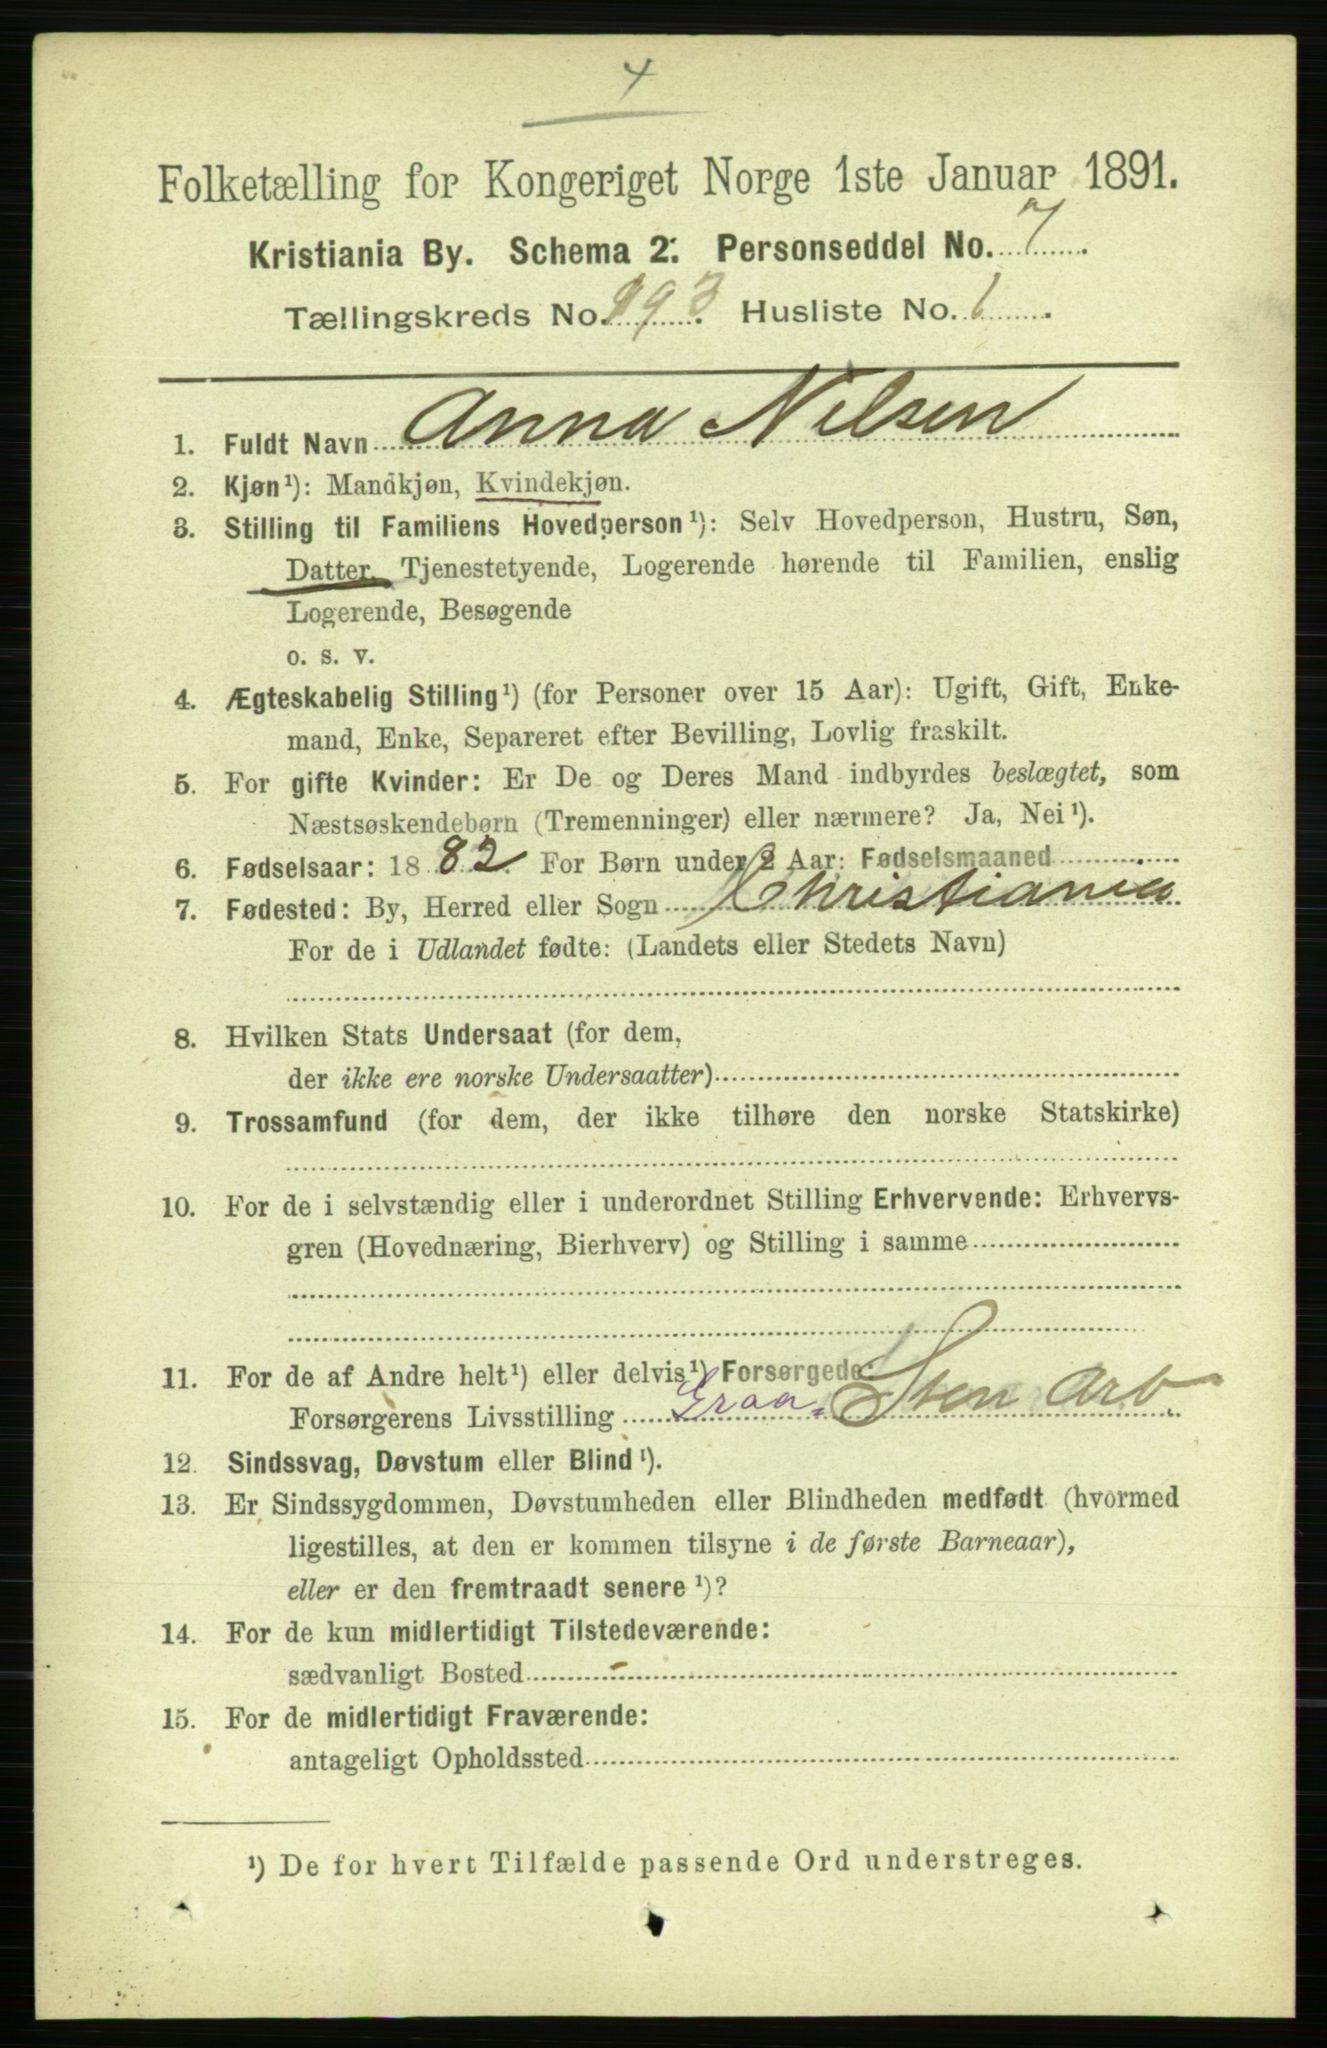 4
Folketælling for Kongeriget Norge 1ste Januar 1891.
Kristiania By. Schema 2. Personseddel No. 7
Tællingskreds No. 193. Husliste No. 1
1. Fuldt Navn Anna Nilsen
2. Kjøn¹): Mandkjøn, Kvindekjøn.
3. Stilling til Familiens Hovedperson¹): Selv Hovedperson, Hustru, Søn,
Datter, Tjenestetyende, Logerende hørende til Familien, enslig
Logerende, Besøgende
o. s. v.
4. Ægteskabelig Stilling¹) (for Personer over 15 Aar): Ugift, Gift, Enke-
mand, Enke, Separeret efter Bevilling, Lovlig fraskilt.
5. For gifte Kvinder: Er De og Deres Mand indbyrdes beslægtet, som
Næstsøskendebørn (Tremenninger) eller nærmere? Ja, Nei¹).
6. Fødselsaar: 1882. For Børn under 2 Aar: Fødselsmaaned
7. Fødested: By, Herred eller Sogn Christiania
For de i Udlandet fødte: (Landets eller Stedets Navn)
8. Hvilken Stats Undersaat (for dem,
der ikke ere norske Undersaatter)
9. Trossamfund (for dem, der ikke tilhøre den norske Statskirke)
10. For de i selvstændig eller i underordnet Stilling Erhvervende: Erhvervs-
gren (Hovednæring, Bierhverv) og Stilling i samme
11. For de af Andre helt¹) eller delvis¹) Forsørgede:
Forsørgerens Livsstilling Graa- Sten arb.
12. Sindssvag, Døvstum eller Blind¹).
13. Er Sindssygdommen, Døvstumheden eller Blindheden medfødt (hvormed
ligestilles, at den er kommen tilsyne i de første Barneaar),
eller er den fremtraadt senere¹)?
14. For de kun midlertidigt Tilstedeværende:
sædvanligt Bosted
15. For de midlertidigt Fraværende:
antageligt Opholdssted
¹) De for hvert Tilfælde passende Ord understreges.